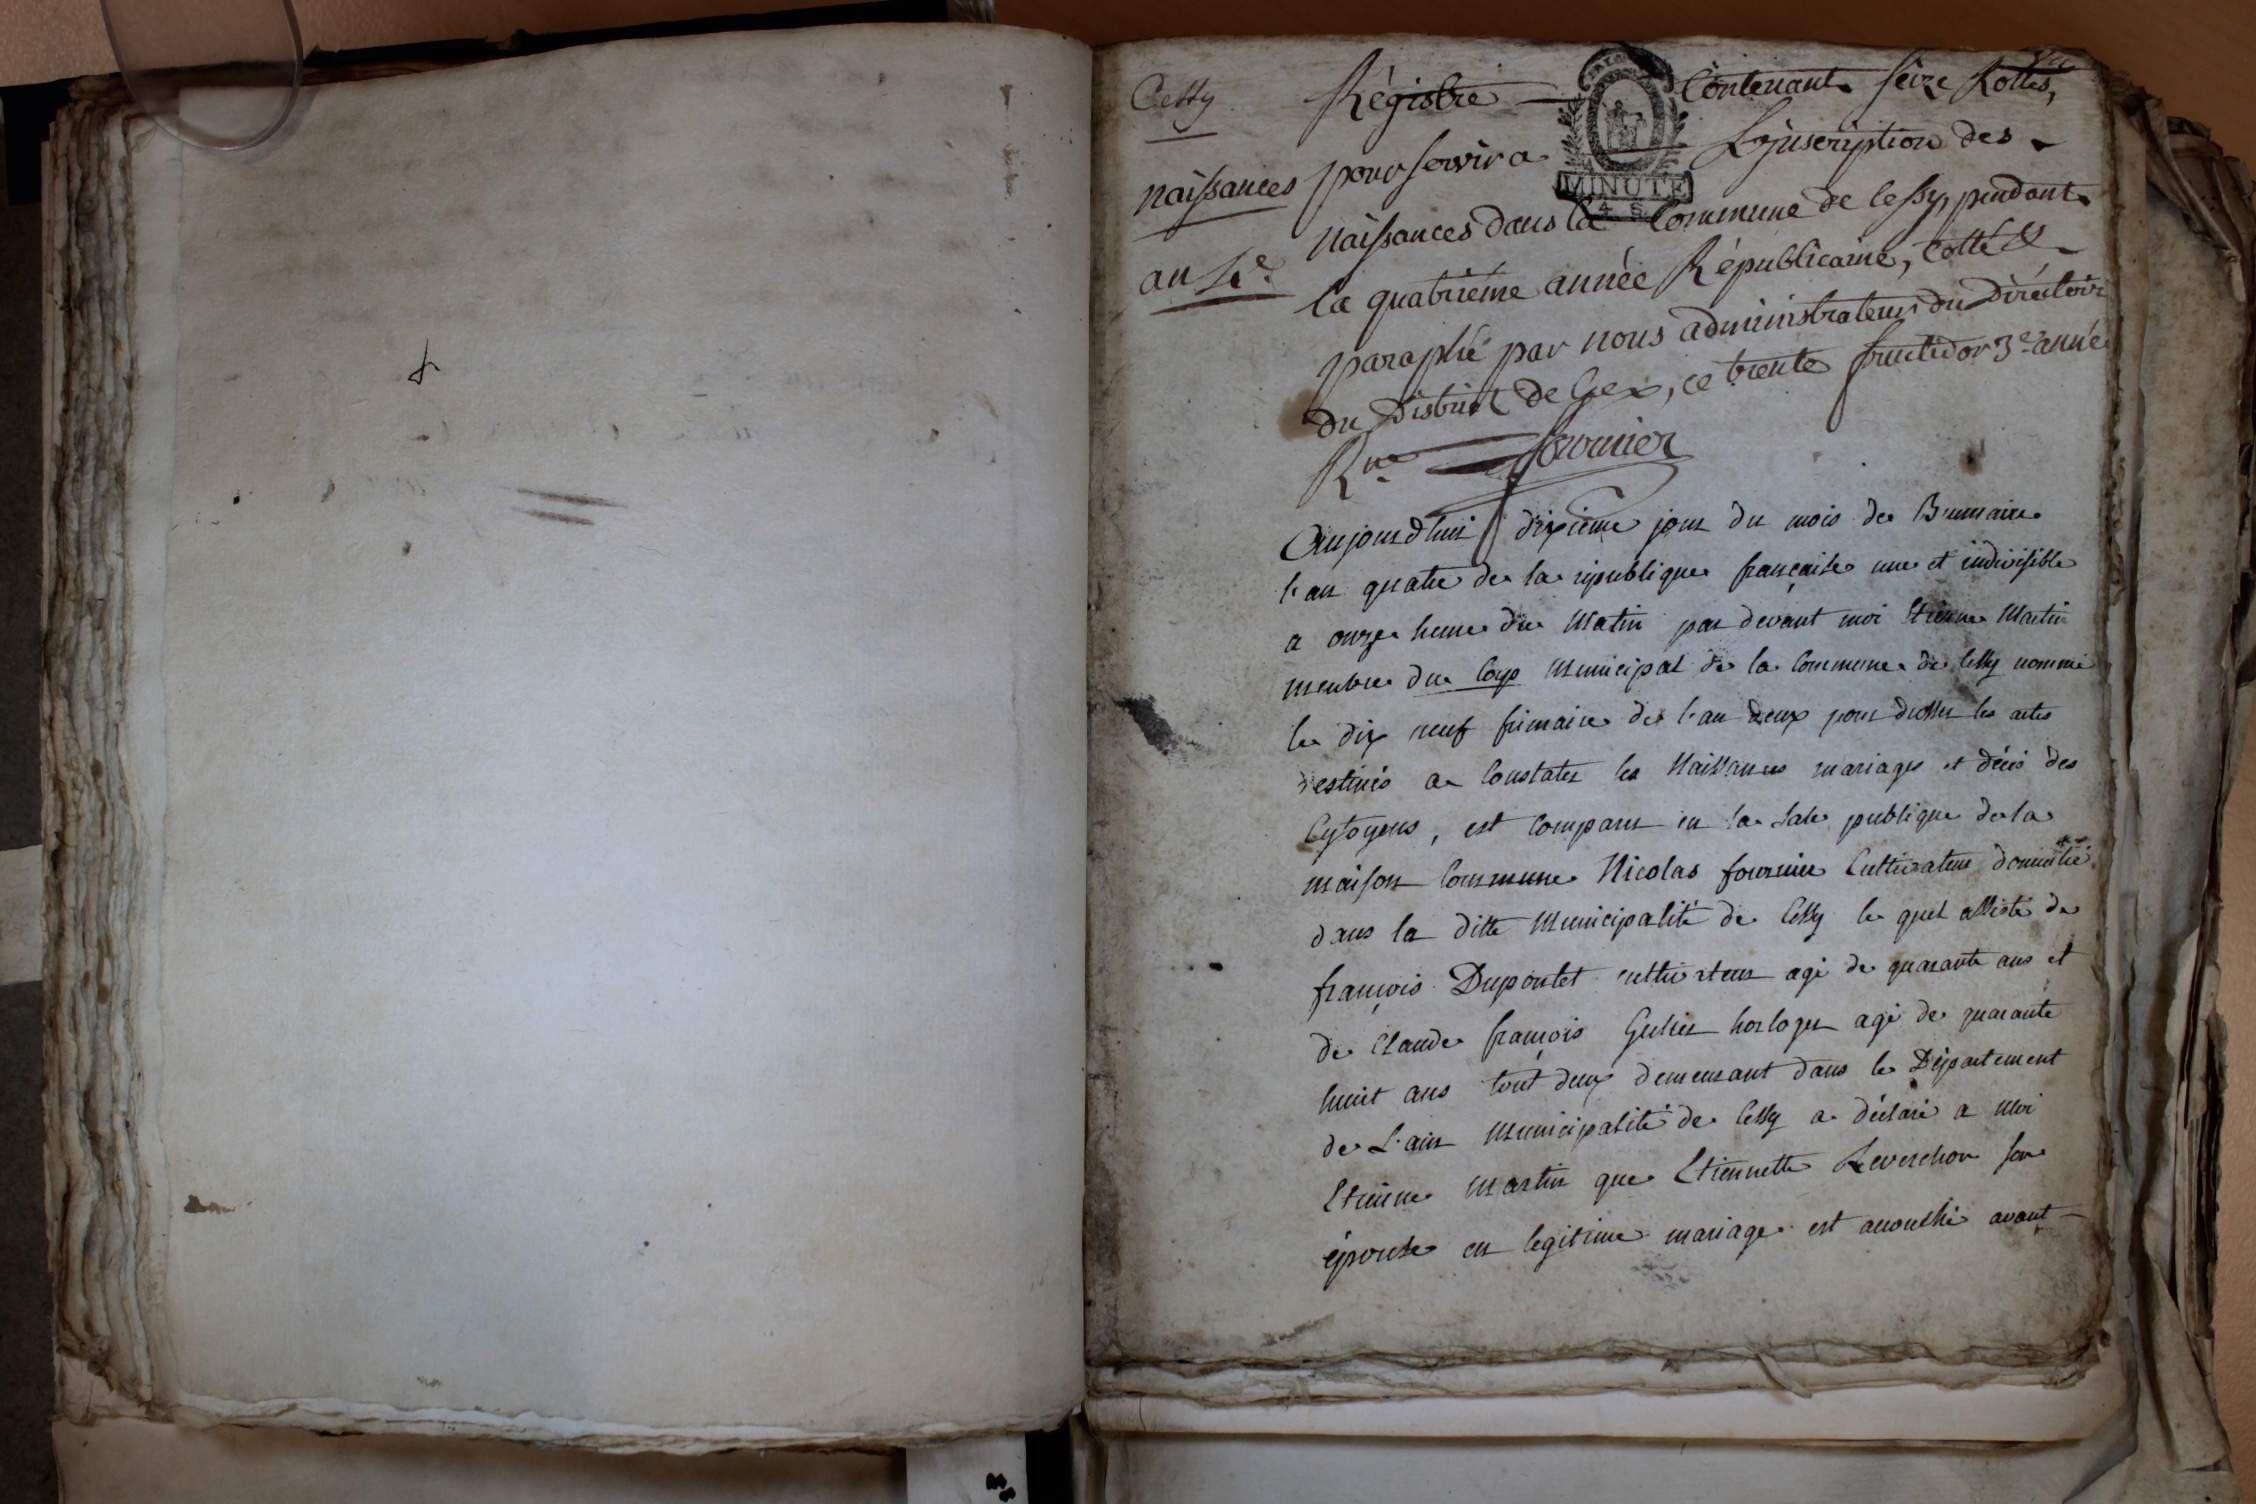 Cessy
naissances
an 4e.
Régistre Contenant seize Rolles,
pour servir a L'juscription des
naissances dans la Commune de Cessy, pendant
la quatrieme année Républicaine, Cotté &
paraphé par nous administrateurs du Directoire
du District de Gex, ce trente fructidor 3e. année
Rne. fournier
MINUTE
4 S
Aujourdhui dixieme jour du mois de Brumaire
l'an quatre de la république française une et indivisible
a onze heure du Matin par devant moi Etienne Martin
membre du Corp Municipal de la Commune de Cessy nommé
le dix neuf frimaire de l'an deux pour dresser les actes
destinés a Constater les Naissances mariages et décés des
Cytoyens, est Comparu en la Sale publique de la
maison Commune Nicolas fournier Cultivateur domicilié
dans la ditte Municipalité de Cessy le quel assisté de
françois Dupontet cultivateur agé de quarante ans et
de Claude françois horloger agé de quarante
huit ans tout deux demeurant dans le Département
de L'ain Municipalité de Cessy a déclaré a Moi
Etienne Martin que Etiennette Reverchon son
épouse en legitime mariage est accouchée avant